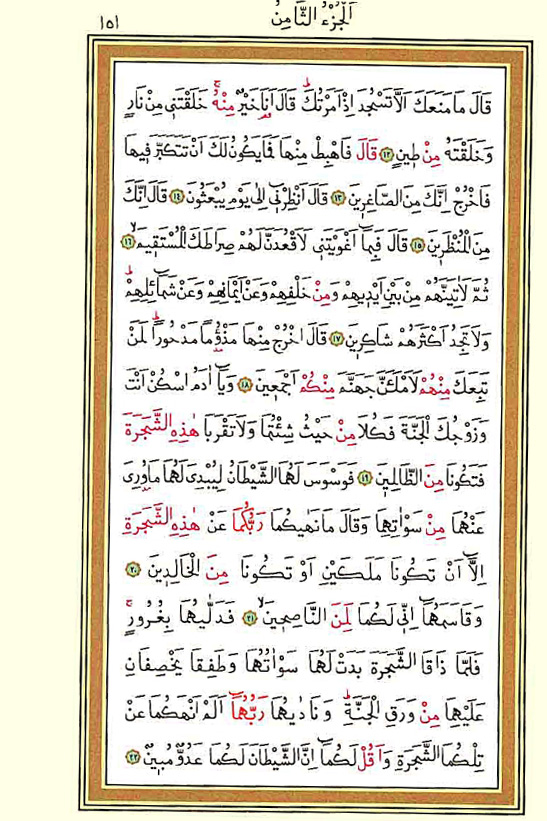 اَلْجُزْءُ الثَّامِنُ
١٥١
قَالَ مَا مَنَعَكَ اَلَّا تَسْجُدَ اِذْ اَمَرْتُكَۜ قَالَ اَنَا۬ خَيْرٌ مِنْهُۚ خَلَقْتَن۪ي مِنْ نَارٍ
وَخَلَقْتَهُ مِنْ ط۪ينٍ ﴿١٢﴾ قَالَ فَاهْبِطْ مِنْهَا فَمَا يَكُونُ لَكَ اَنْ تَتَكَبَّرَ ف۪يهَا
فَاخْرُجْ اِنَّكَ مِنَ الصَّاغِر۪ينَ ﴿١٣﴾ قَالَ اَنْظِرْن۪ٓي اِلٰى يَوْمِ يُبْعَثُونَ ﴿١٤﴾ قَالَ اِنَّكَ
مِنَ الْمُنْظَر۪ينَ ﴿١٥﴾ قَالَ فَبِمَٓا اَغْوَيْتَن۪ي لَاَقْعُدَنَّ لَهُمْ صِرَاطَكَ الْمُسْتَق۪يمَۙ ﴿١٦﴾
ثُمَّ لَاٰتِيَنَّهُمْ مِنْ بَيْنِ اَيْد۪يهِمْ وَمِنْ خَلْفِهِمْ وَعَنْ اَيْمَانِهِمْ وَعَنْ شَمَٓائِلِهِمْۜ
وَلَا تَجِدُ اَكْثَرَهُمْ شَاكِر۪ينَ ﴿١٧﴾ قَالَ اخْرُجْ مِنْهَا مَذْؤُ۫مًا مَدْحُورًاۜ لَمَنْ
تَبِعَكَ مِنْهُمْ لَاَمْلَـَٔنَّ جَهَنَّمَ مِنْكُمْ اَجْمَع۪ينَ ﴿١٨﴾ وَيَٓا اٰدَمُ اسْكُنْ اَنْتَ
وَزَوْجُكَ الْجَنَّةَ فَكُلَا مِنْ حَيْثُ شِئْتُمَا وَلَا تَقْرَبَا هٰذِهِ الشَّجَرَةَ
فَتَكُونَا مِنَ الظَّالِم۪ينَ ﴿١٩﴾ فَوَسْوَسَ لَهُمَا الشَّيْطَانُ لِيُبْدِيَ لَهُمَا مَا وُ۫رِيَ
عَنْهُمَا مِنْ سَوْاٰتِهِمَا وَقَالَ مَا نَهٰيكُمَا رَبُّكُمَا عَنْ هٰذِهِ الشَّجَرَةِ
اِلَّٓا اَنْ تَكُونَا مَلَكَيْنِ اَوْ تَكُونَا مِنَ الْخَالِد۪ينَ ﴿٢٠﴾
وَقَاسَمَهُمَٓا اِنّ۪ي لَكُمَا لَمِنَ النَّاصِح۪ينَۙ ﴿٢١﴾ فَدَلّٰيهُمَا بِغُرُورٍۚ
فَلَمَّا ذَاقَا الشَّجَرَةَ بَدَتْ لَهُمَا سَوْاٰتُهُمَا وَطَفِقَا يَخْصِفَانِ
عَلَيْهِمَا مِنْ وَرَقِ الْجَنَّةِۜ وَنَادٰيهُمَا رَبُّهُمَٓا اَلَمْ اَنْهَكُمَا عَنْ
تِلْكُمَا الشَّجَرَةِ وَاَقُلْ لَكُمَٓا اِنَّ الشَّيْطَانَ لَكُمَا عَدُوٌّ مُب۪ينٌ ﴿٢٢﴾